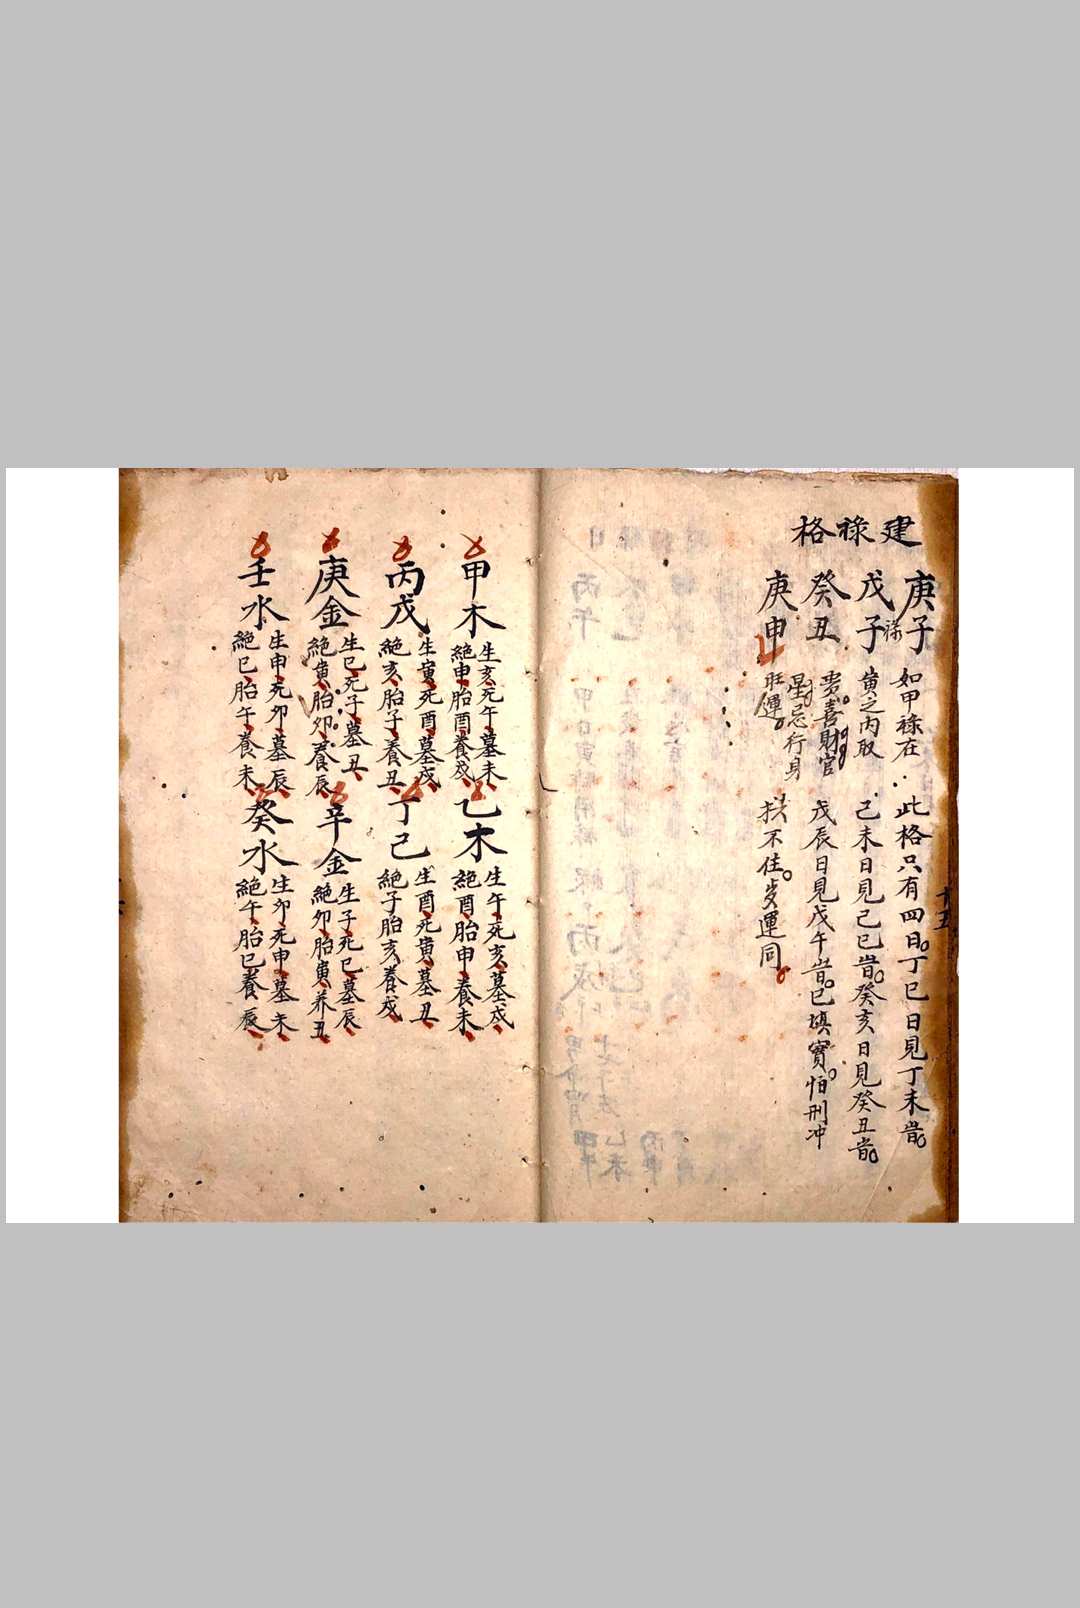 建祿格
庚子 如甲祿在 此格只有四日丁巳日見丁未皆
戊子 黄之内取 己未日見己巳皆癸亥日見癸丑皆
祿
癸丑 喜財官 戊辰日見戊午皆巳填實怕刑冲
星忌行身
庚申 旺運 扶不住歲運同
十五
甲木 生亥死午墓未
絶申胎酉養戌
乙木 生午死亥墓戌
絶酉胎申養未
丙戊 生寅死酉墓戌
絶亥胎子養丑
丁己 生酉死寅墓丑
絶子胎亥養戌
庚金 生巳死子墓丑
絶寅胎卯養辰
辛金 生子死巳墓辰
絶卯胎寅养丑
壬水 生申死卯墓辰
絶巳胎午養未
癸水 生卯死申墓未
絶午胎巳養辰